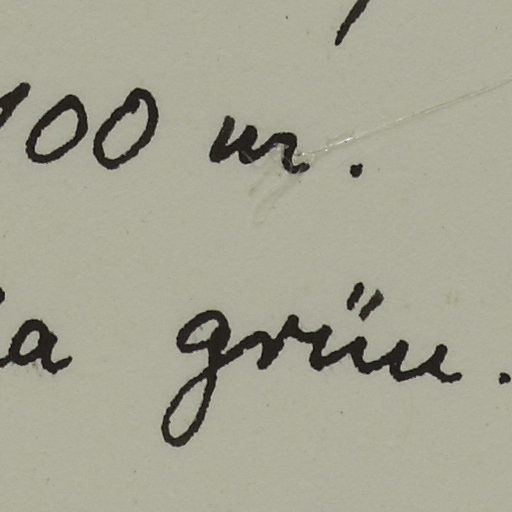 100 m.
a grün.